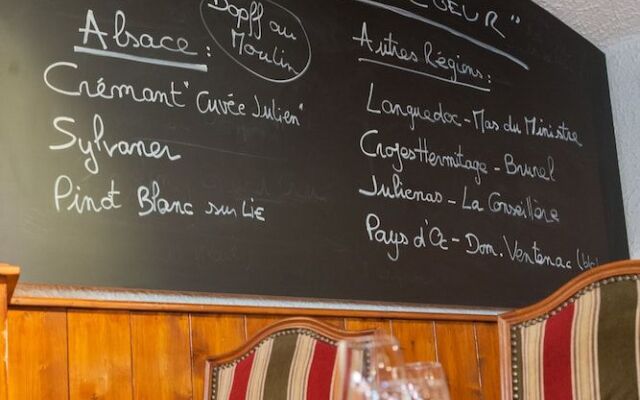 CUEUR"
Alsace :
Dopff au
Moulin
Crémant "Cuvée Julien"
Sylvaner
Pinot Blanc sur Lie
Autres Régions :
Languedoc - Mas du Ministre
Crozes Hermitage - Brunel
Julienas - La Conseillère
Pays d'Oc - Dom. Ventenac